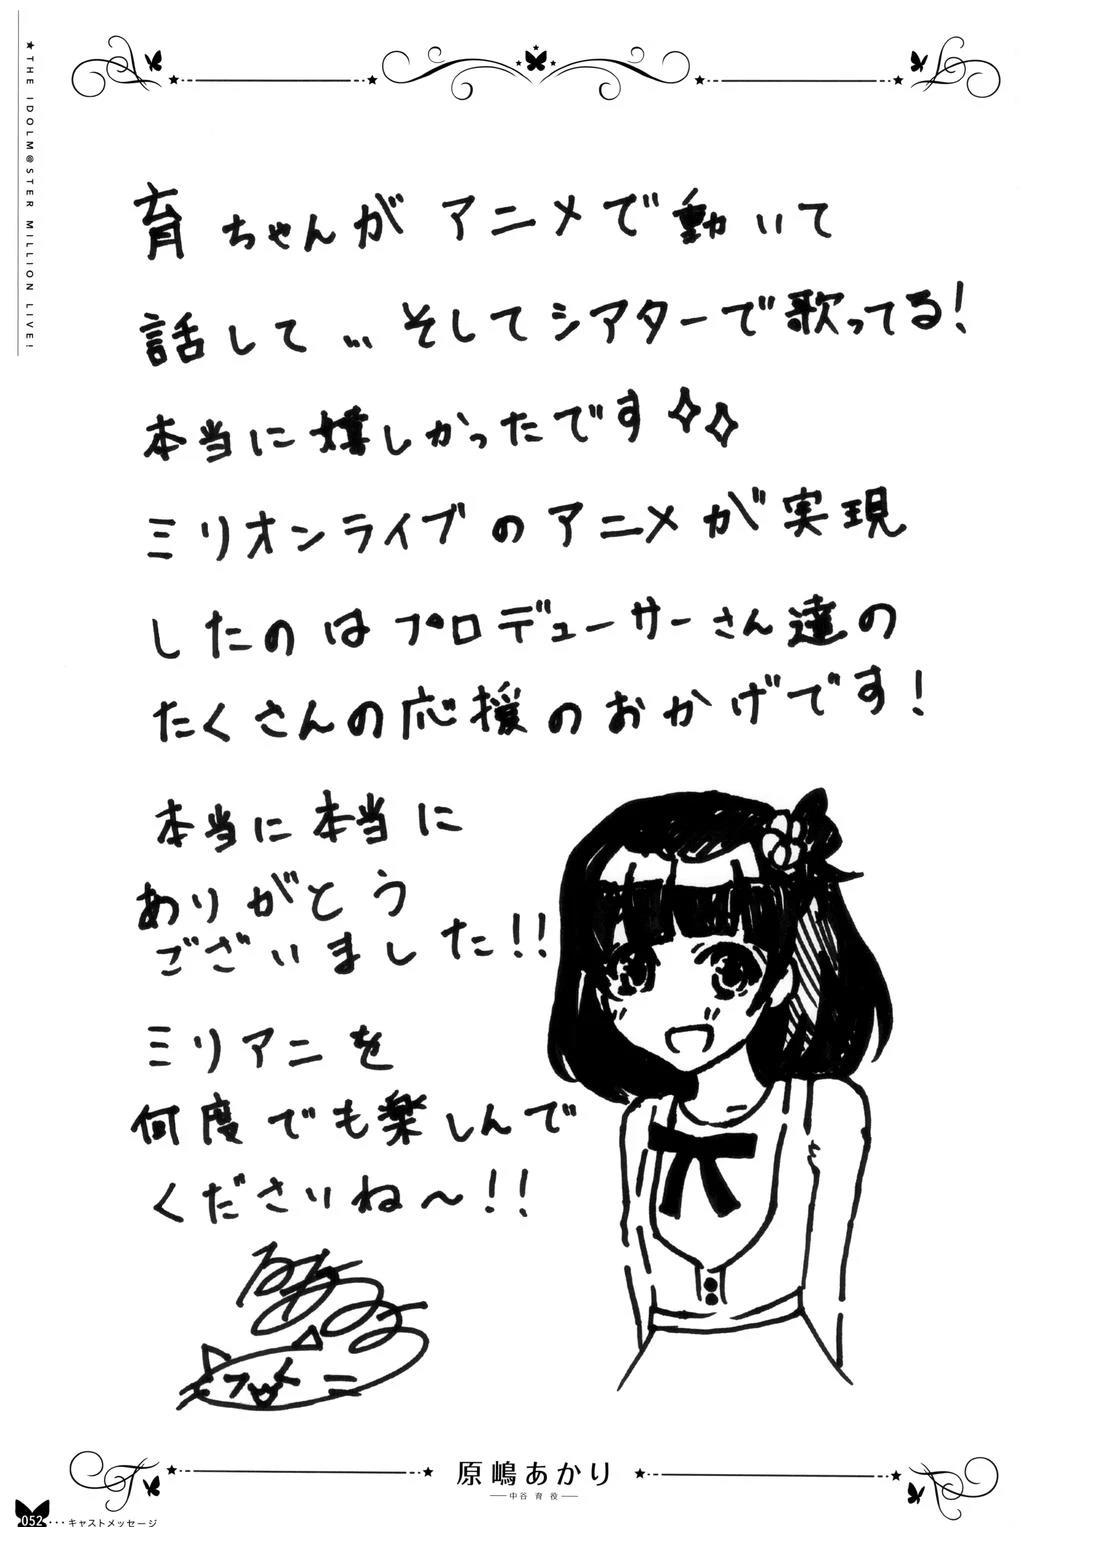 ★THE IDOLM@STER MILLION LIVE!
育ちゃんが アニメで動いて
話して … そしてシアターで歌ってる!
本当に嬉しかったです
ミリオンライブのアニメが実現
したのはプロデューサーさん達の
たくさんの応援のおかげです!
本当に本当に
ありがとう
ございました!!
ミリアニを
何度でも楽しんで
くださいね〜!!
原嶋あかり
中谷 育 役
052・・・キャストメッセージ